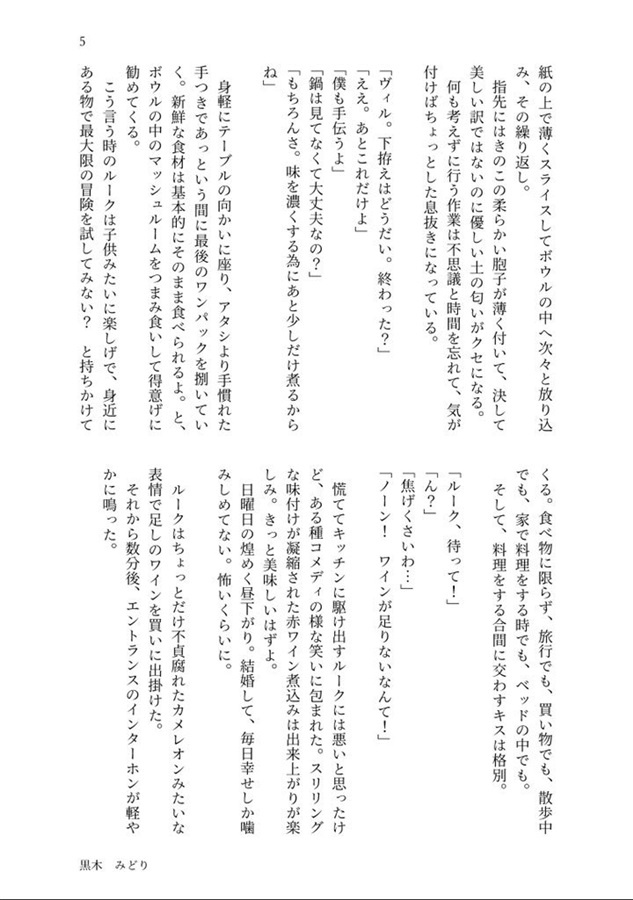 5
紙の上で薄くスライスしてボウルの中へ次々と放り込
み、その繰り返し。
指先にはきのこの柔らかい胞子が薄く付いて、決して
美しい訳ではないのに優しい土の匂いがクセになる。
何も考えずに行う作業は不思議と時間を忘れて、気が
付けばちょっとした息抜きになっている。
「ヴィル。下拵えはどうだい。終わった？」
「ええ。あとこれだけよ」
「僕も手伝うよ」
「鍋は見てなくて大丈夫なの？」
「もちろんさ。味を濃くする為にあと少しだけ煮るから
ね」
身軽にテーブルの向かいに座り、アタシより手慣れた
手つきであっという間に最後のワンパックを捌いてい
く。新鮮な食材は基本的にそのまま食べられるよ。と、
ボウルの中のマッシュルームをつまみ食いして得意げに
勧めてくる。
こう言う時のルークは子供みたいに楽しげで、身近に
ある物で最大限の冒険を試してみない？　と持ちかけて
くる。食べ物に限らず、旅行でも、買い物でも、散歩中
でも、家で料理をする時でも、ベッドの中でも。
そして、料理をする合間に交わすキスは格別。
「ルーク、待って！」
「ん？」
「焦げくさいわ…」
「ノーン！　ワインが足りないなんて！」
慌ててキッチンに駆け出すルークには悪いと思ったけ
ど、ある種コメディの様な笑いに包まれた。スリリング
な味付けが凝縮された赤ワイン煮込みは出来上がりが楽
しみ。きっと美味しいはずよ。
日曜日の煌めく昼下がり。結婚して、毎日幸せしか噛
みしめてない。怖いくらいに。
ルークはちょっとだけ不貞腐れたカメレオンみたいな
表情で足しのワインを買いに出掛けた。
それから数分後、エントランスのインターホンが軽や
かに鳴った。
黒木　みどり